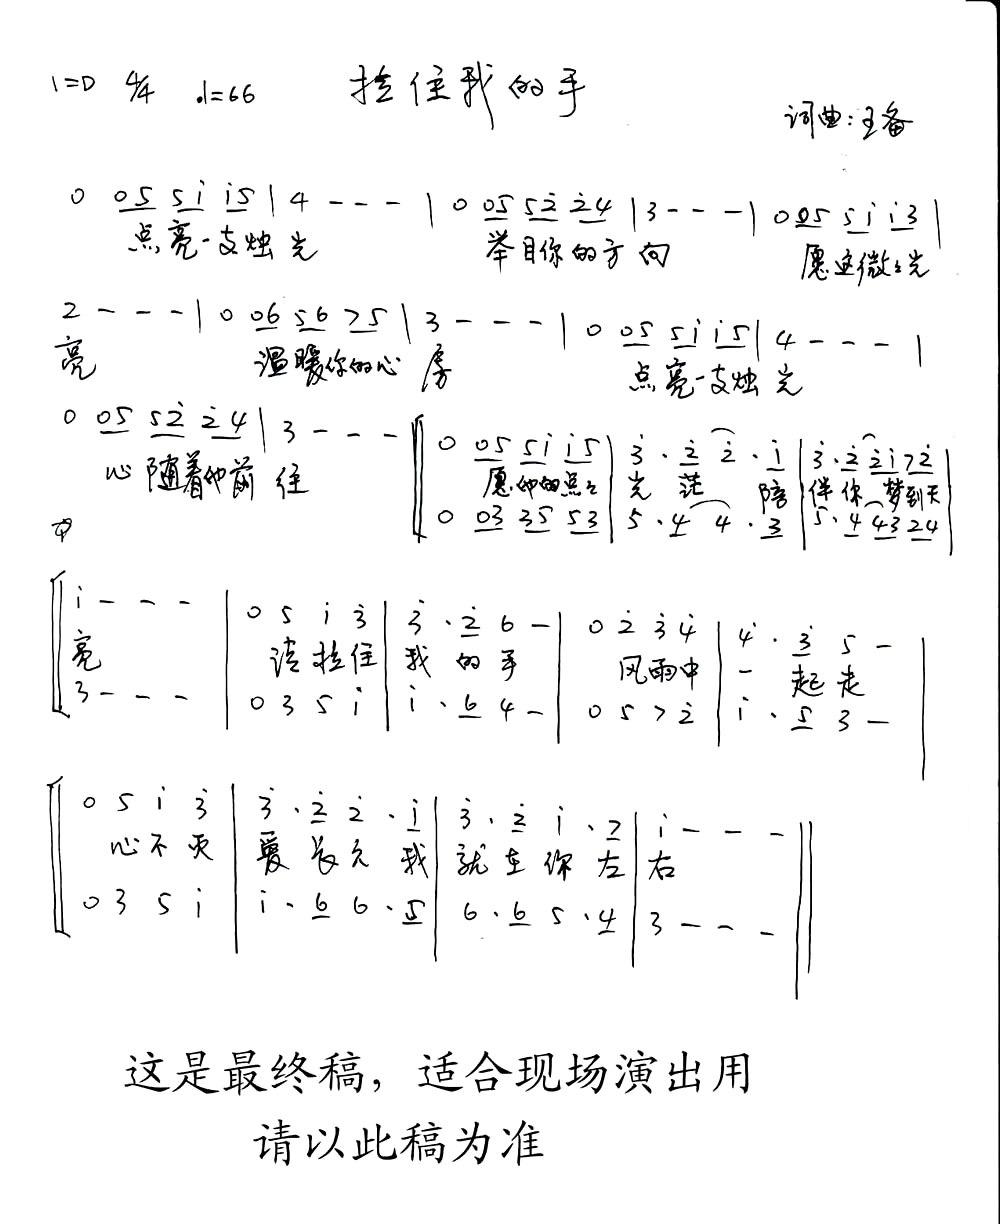 1=D 4/4 ♩=66 拉住我的手
词曲:王备
0 05 5i i5 | 4 - - - | 0 05 52 24 | 3 - - - | 0 05 5i i3 |
点亮一支烛光 举目你的方向 愿这微微光
2 - - - | 0 06 56 75 | 3 - - - | 0 05 5i i5 | 4 - - - |
亮 温暖你的心房 点亮一支烛光
0 05 52 24 | 3 - - - 0 05 5i i5 | 3 · 2 2 · i | 3 · 2 2i 72 |
心随着他前往 愿他的点点 光茫 陪 伴你 梦到天
0 03 35 53 | 5 · 4 4 · 3 | 5 · 4 43 24
i - - - | 0 5 i 3 | 3 · 2 6 - | 0 2 3 4 | 4 · 3 5 -
亮 请拉住 我的手 风雨中 一起走
3 - - - | 0 3 5 i | i · 6 4 - | 0 5 7 2 | i · 5 3 -
0 5 i 3 | 3 · 2 2 · i | 3 · 2 i · 7 | i - - -
心不灭 爱长久 我 就在你左右
0 3 5 i | i · 6 6 · 5 | 6 · 6 5 · 4 | 3 - - -
这是最终稿，适合现场演出用
请以此稿为准